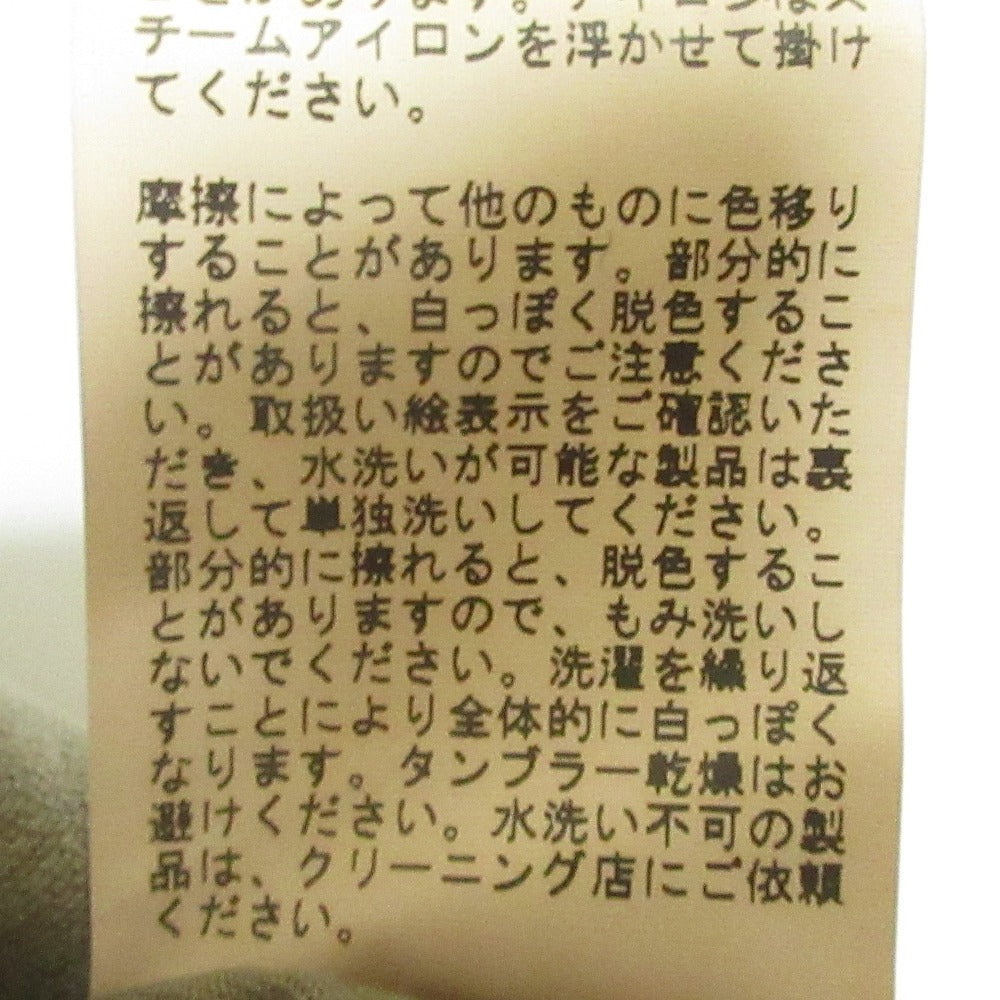 チームアイロンを浮かせて掛け
てください。
摩擦によって他のものに色移り
することがあります。部分的に
擦れると、白っぽく脱色するこ
とがありますのでご注意くださ
い。取扱い絵表示をご確認いた
だき、水洗いが可能な製品は裏
返して単独洗いしてください。
部分的に擦れると、脱色するこ
とがありますので、もみ洗いし
ないでください。洗濯を繰り返
すことにより全体的に白っぽく
なります。タンブラー乾燥はお
避けください。水洗い不可の製
品は、クリーニング店にご依頼
ください。